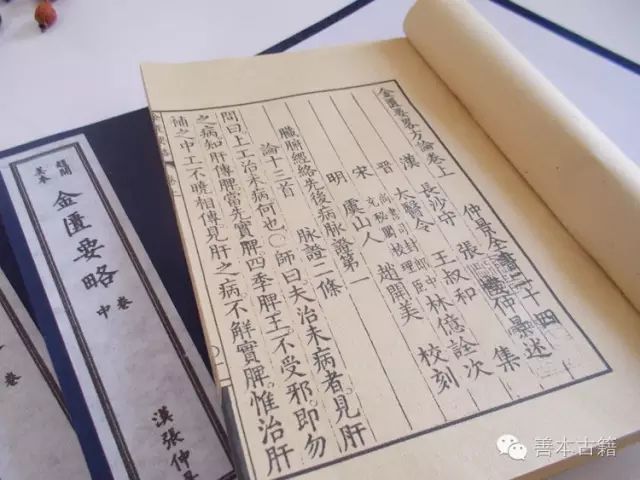 金匱要略方論卷上 仲景全書二十四
漢 長沙守 張機仲景述
晉 太醫令 王叔和 集
宋 尚書司封郎中
充秘閣校理臣 林億 詮次
明 虞山人 趙開美 校刻
臟腑經絡先後病脉證第一
論十三首 脉證二條
問曰上工治未病何也○師曰夫治未病者見肝
之病知肝傳脾當先實脾四季脾王不受邪即勿
補之中工不曉相傳見肝之病不觧實脾惟治肝
金匱要略
中卷
漢張仲
卷
善本古籍